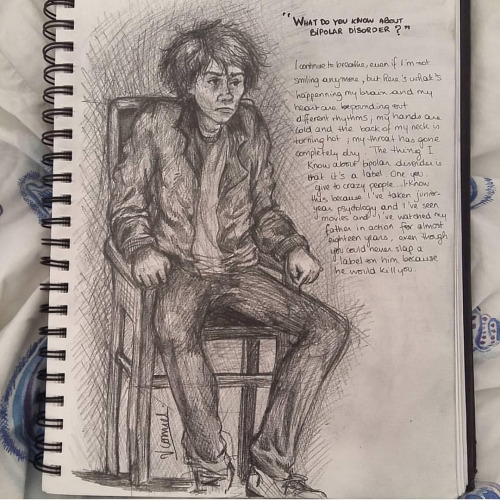 "WHAT DO YOU KNOW ABOUT
BIPOLAR DISORDER?"
I continue to breathe, even if I'm not
smiling anymore, but here's what's
happenning my brain and my
heart are pounding out
different rhythms; my hands are
cold and the back of my neck is
hot; my throat has gone
completely dry. The thing I
know about bipolar disorder is
that it's a label. One you
give to crazy people. I know
this because I've taken junior-
year psychology and I've seen
movies and I've watched my
father in action for almost
eighteen years, even though
you could never slap a
label on him because
he would kill you.